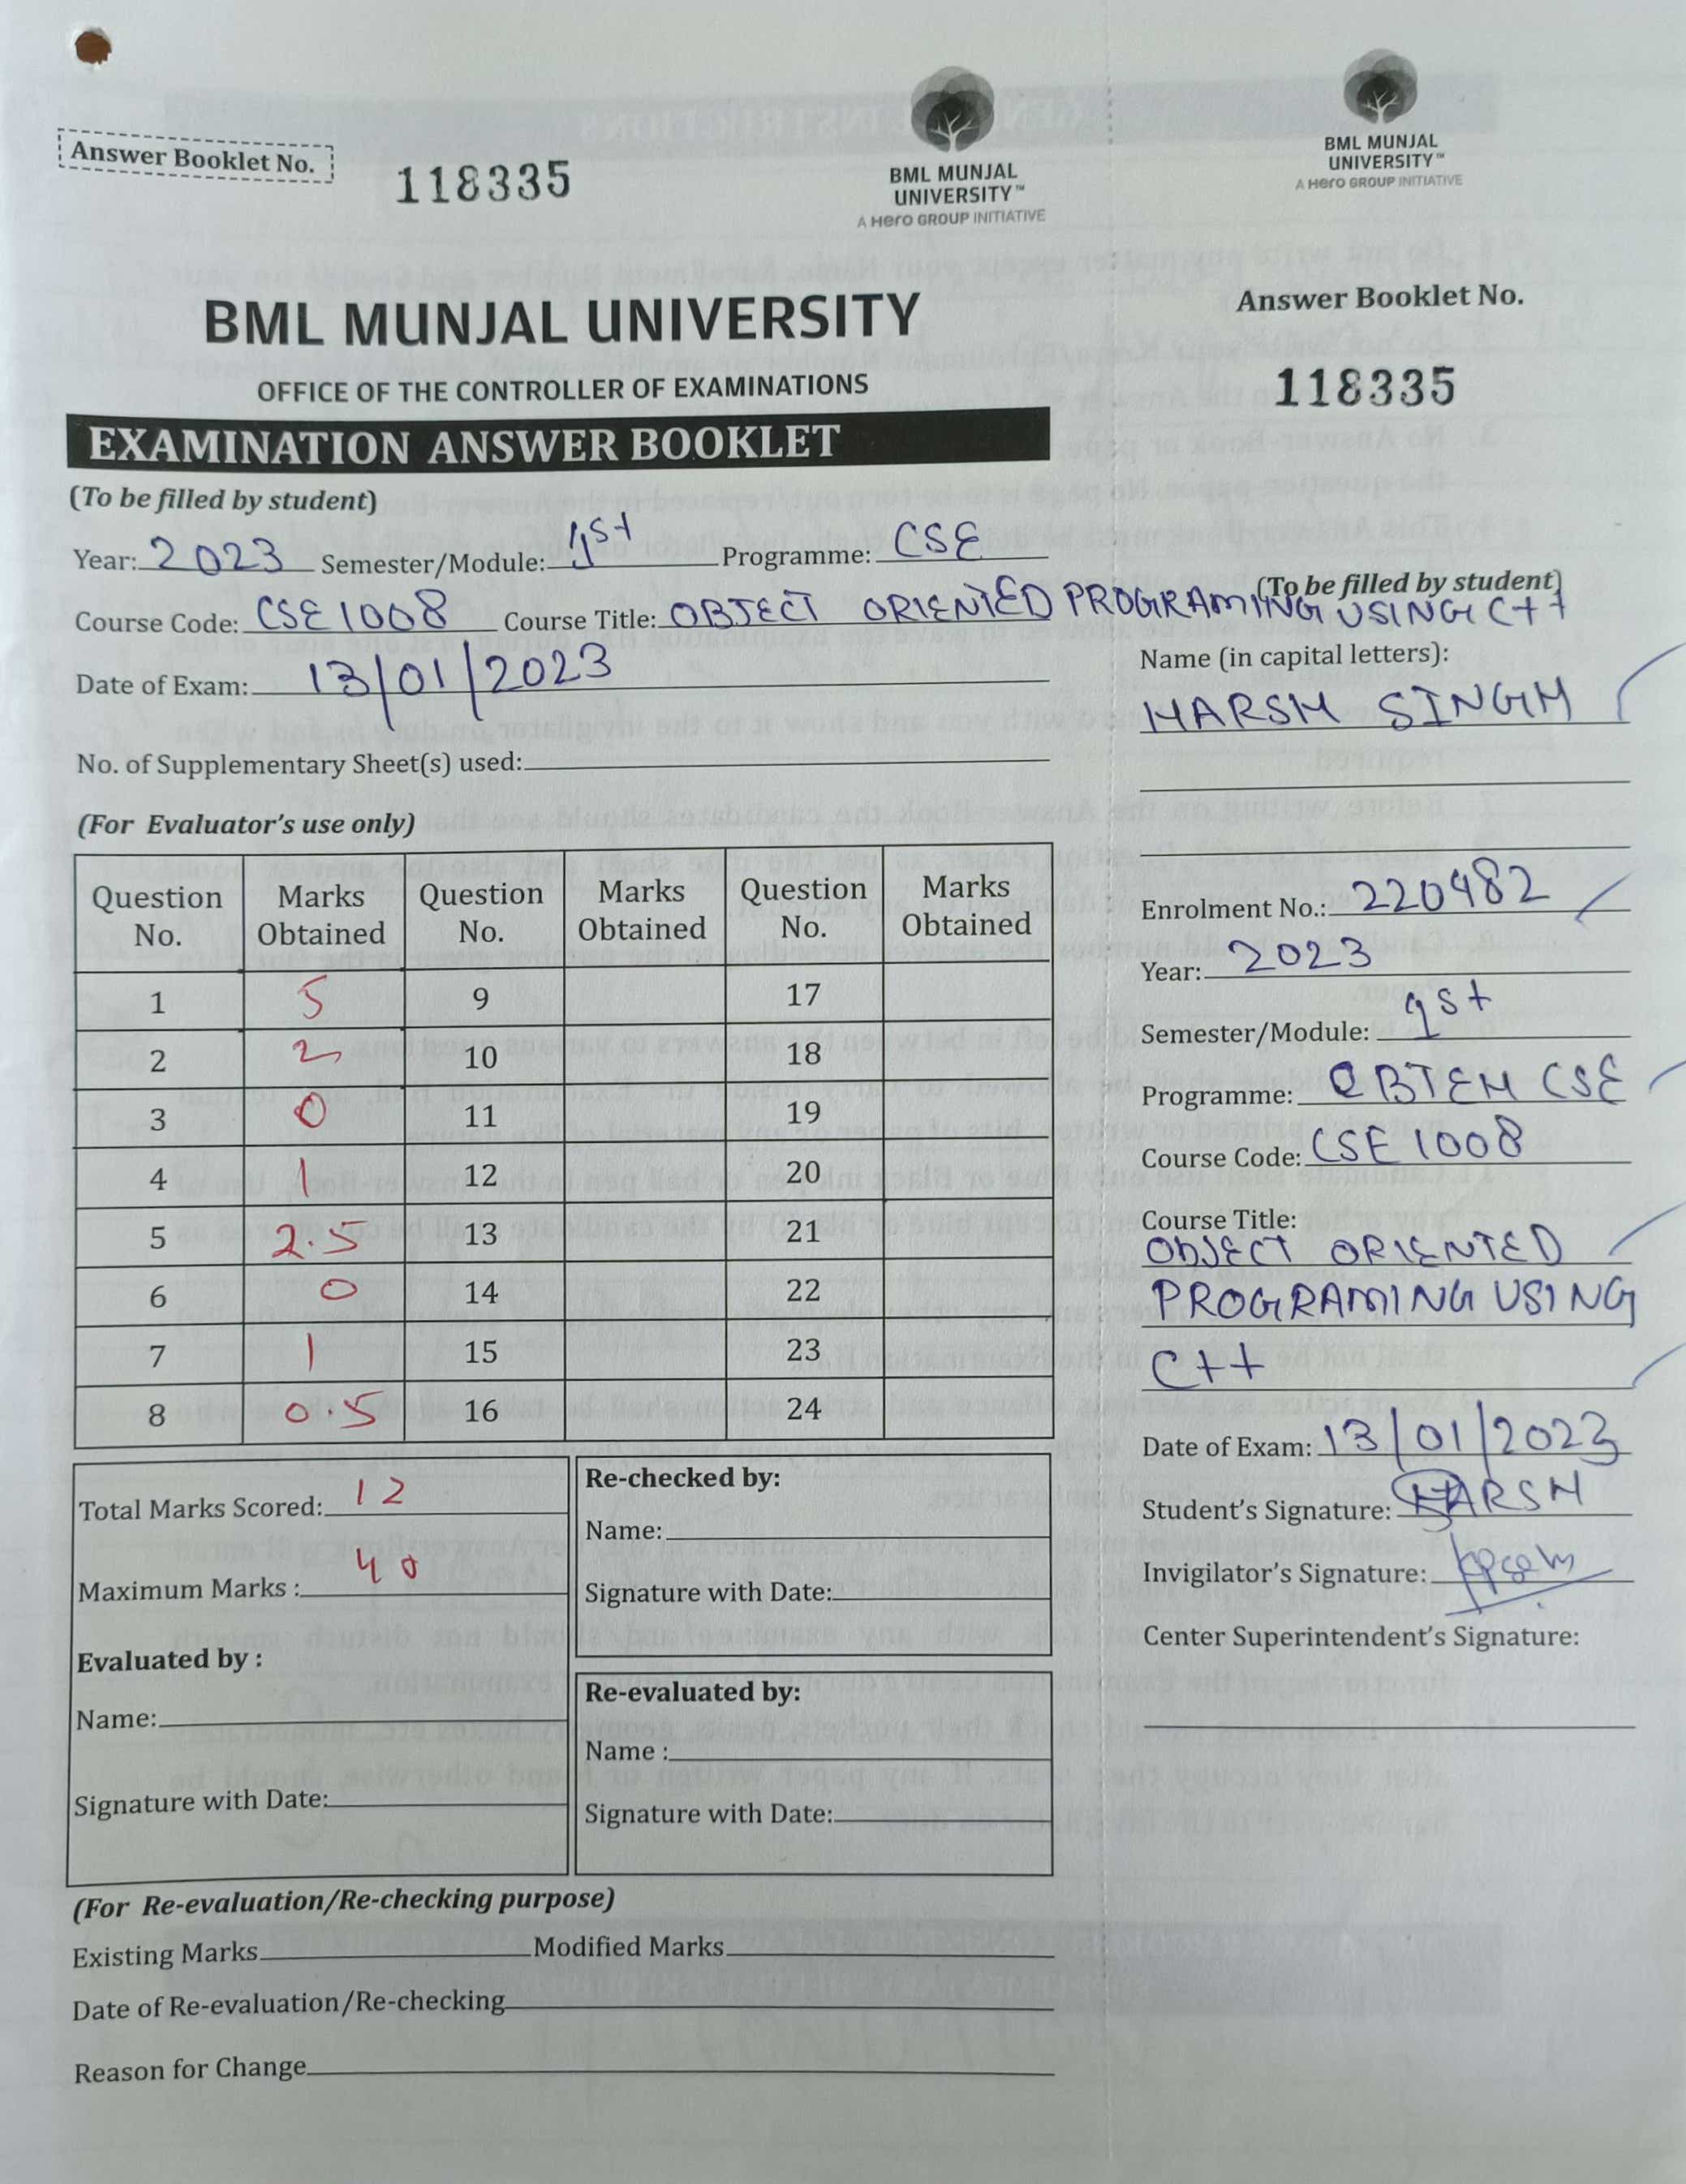 Answer Booklet No.
118335
BML MUNJAL
UNIVERSITY™
A Hero GROUP INITIATIVE
BML MUNJAL UNIVERSITY
OFFICE OF THE CONTROLLER OF EXAMINATIONS
EXAMINATION ANSWER BOOKLET
(To be filled by student)
Year: 2023 Semester/Module: 1st Programme: CSE
Course Code: CSE1008 Course Title: OBJECT ORIENTED PROGRAMING USING C++
Date of Exam: 13/01/2023
No. of Supplementary Sheet(s) used:
(For Evaluator's use only)
Question No. Marks Obtained Question No. Marks Obtained Question No. Marks Obtained
1 5 9 17
2 2 10 18
3 0 11 19
4 1 12 20
5 2.5 13 21
6 0 14 22
7 1 15 23
8 0.5 16 24
Total Marks Scored: 12
Maximum Marks : 40
Evaluated by :
Name:
Signature with Date:
Re-checked by:
Name:
Signature with Date:
Re-evaluated by:
Name :
Signature with Date:
(For Re-evaluation/Re-checking purpose)
Existing Marks Modified Marks
Date of Re-evaluation/Re-checking
Reason for Change
BML MUNJAL
UNIVERSITY™
A Hero GROUP INITIATIVE
Answer Booklet No.
118335
(To be filled by student)
Name (in capital letters):
HARSH SINGH
Enrolment No.: 220482
Year: 2023
Semester/Module: 1st
Programme: BTEH CSE
Course Code: CSE1008
Course Title:
OBJECT ORIENTED
PROGRAMING USING
C++
Date of Exam: 13/01/2023
Student's Signature: HARSH
Invigilator's Signature:
Center Superintendent's Signature: